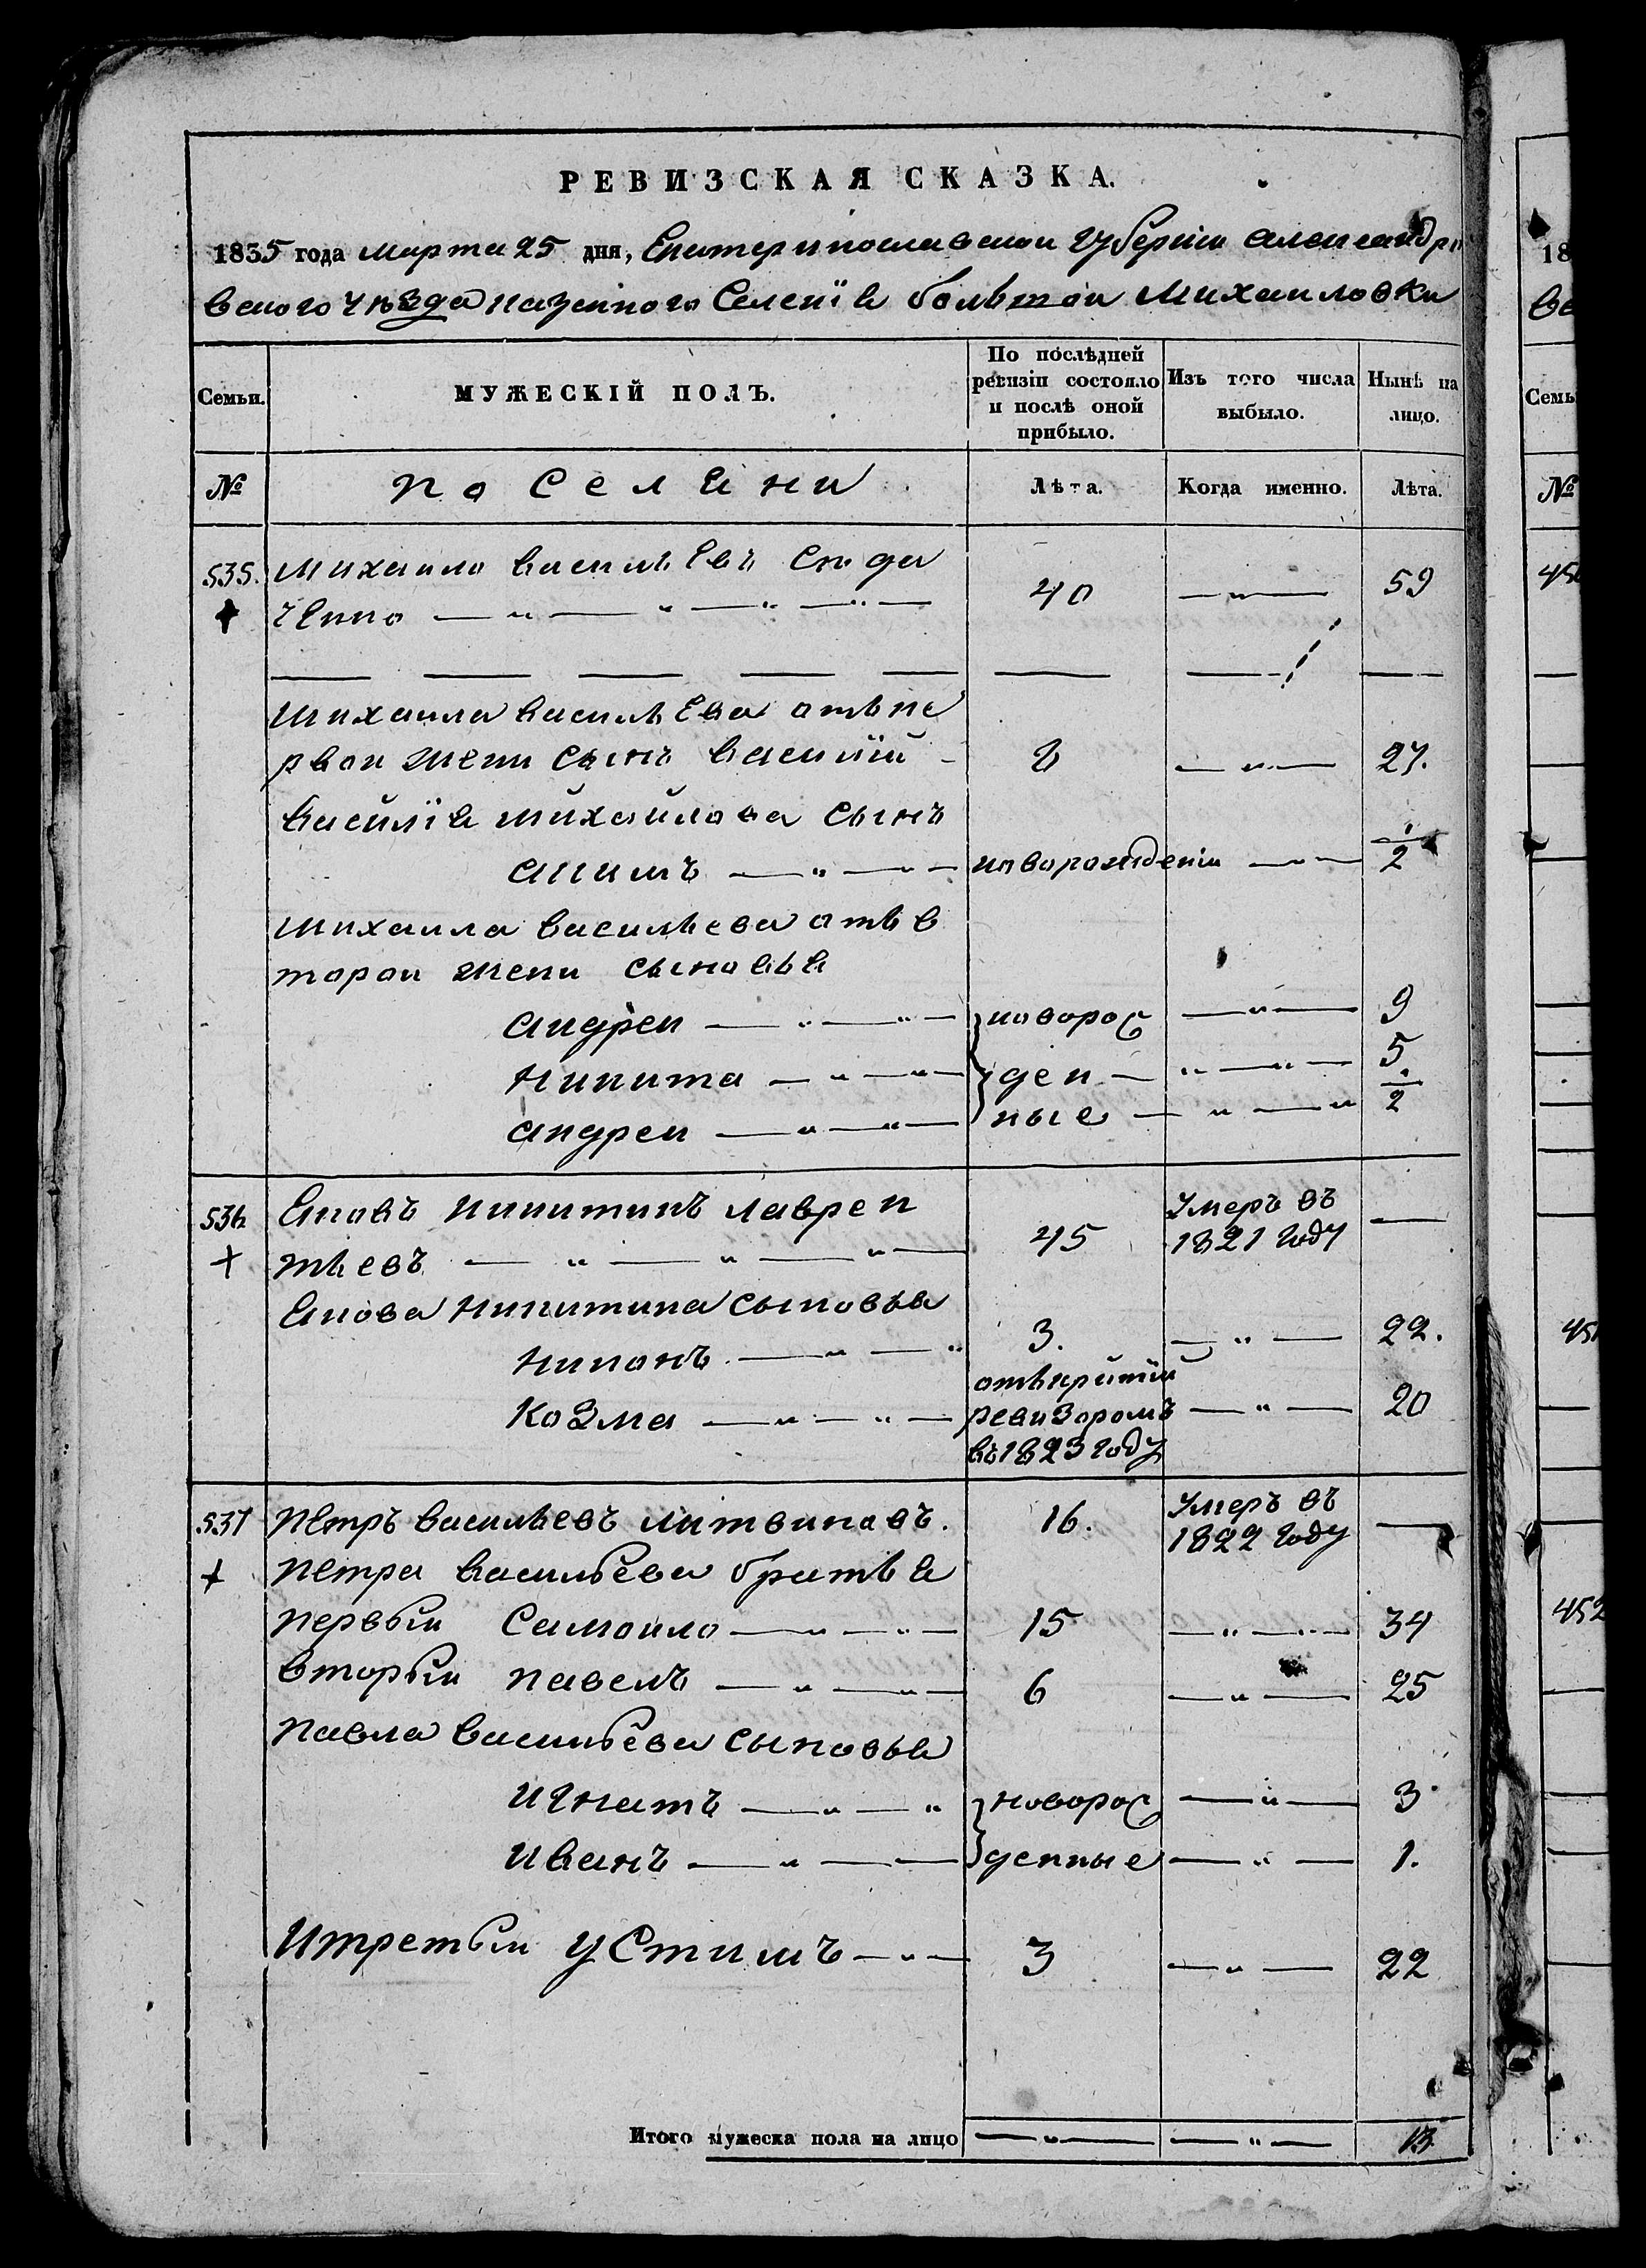 РЕВИЗСКАЯ СКАЗКА.
1835 года марта 25 дня, Екатеринославскои губерніи александро
вского уѣзда казенного Селенія большои Михаиловки
Семьи. МУЖЕСКІЙ ПОЛЪ. По послѣдней ревизіи состояло и послѣ оной прибыло. Изъ того числа выбыло. Нынѣ на лицо.
№ поселяни Лѣта. Когда именно. Лѣта.
535. Михаило васильевъ
ченко 40 59
михаила васильева отъ пе
рвои жени сынъ василій 8 27.
василія михайлова сынъ
акимъ новорожденіи 1/2
михаила васильева отъ в
торои жени сыновья
андреи новорож 9
никита ден 5
андреи ные 1/2
536 Яковъ никитинъ лаврен 45 Умеръ въ 1821 году
тьевъ
Якова никитина сыновья
никонъ 3. 22.
Козма отъкритій ревизоромъ въ 1823 году 20
537 Петръ васильевъ литвиновъ. 16. Умеръ въ 1822 году
петра васильева братья
первыи Самоило 15 34
вторыи павелъ 6 25
павла васильева сыновья
игнатъ новорож 3
иванъ денные 1.
итретыи устимъ 3 22
Итого мужеска пола на лицо 13
18
ве
Семь
№
450
451
452